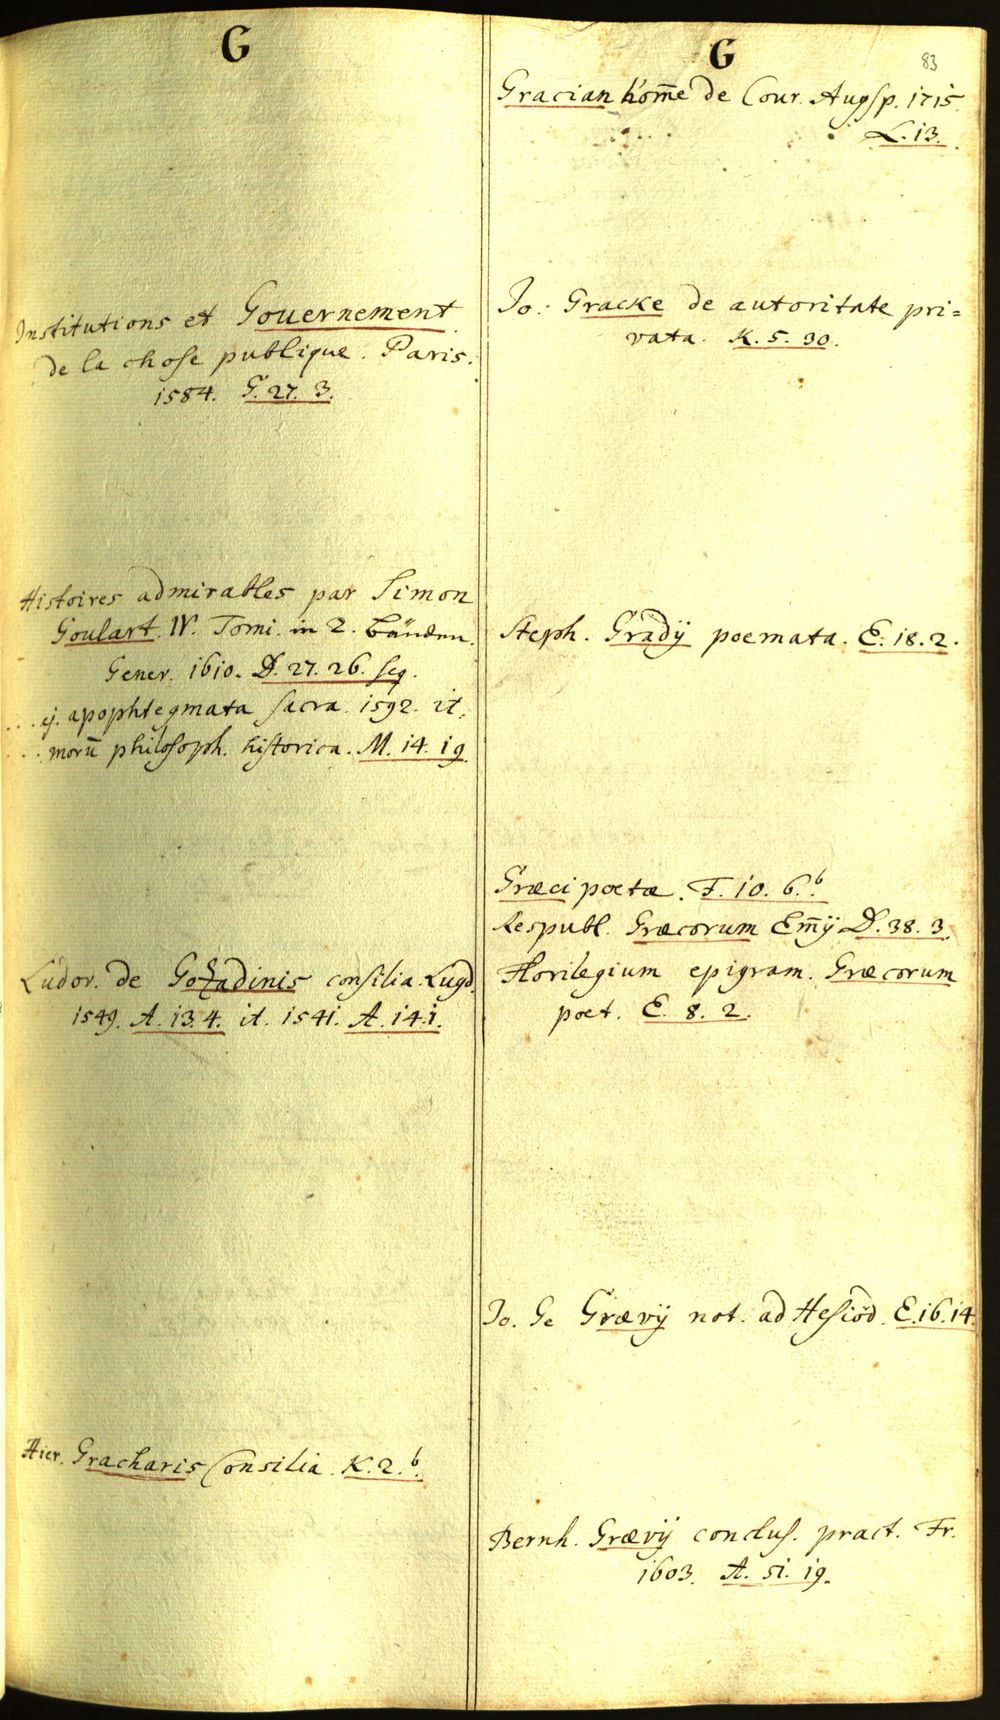 G
Institutions et Gouvernement
de la chose publique. Paris.
1584. G. 27. 3.
Histoires admirables par Simon
Goulart. IV. Tomi. in 2. Bänden.
Genev. 1610. D. 27. 26. seq.
ej. apophtegmata sacra. 1592. it.
morū philosoph. historica. M. 14. 19.
Ludov. de Gozadinis consilia. Lugd.
1549. A. 13. 4. it. 1541. A. 14. 1.
Hier. Gracharis Consilia. K. 2. b.
G
83
Gracian hom̄e de Cour. Augsp. 1715.
L. 13.
Jo. Gracke de autoritate pri=
vata. K. 5. 30.
Steph. Gradÿ poemata. E. 18. 2.
Græci poetæ. F. 10. 6. b
Respubl. Græcorum Em̄ij D. 38. 3.
Florilegium epigram. Græcorum
poet. E. 8. 2.
Jo. Ge Grævij not. ad Hesiod. E. 16. 14.
Bernh. Grævij conclus. pract. Fr.
1603. A. 51. 19.